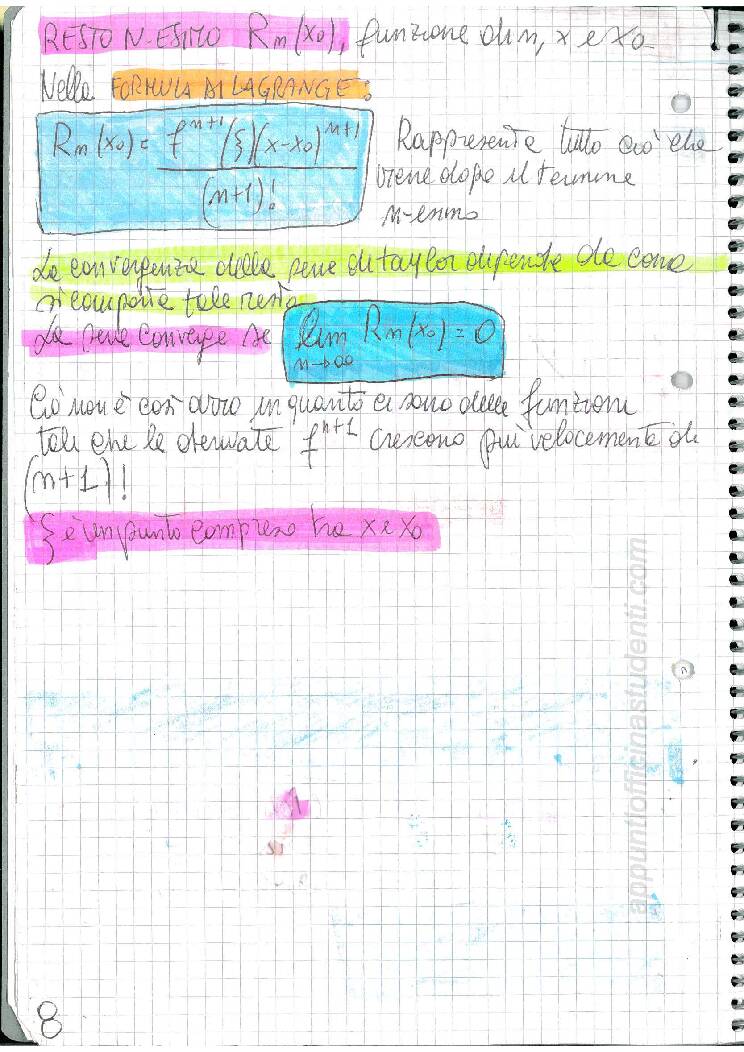 RESTO N-ESIMO Rn(x0), funzione di n, x e x0
Nella FORMULA DI LAGRANGE:
Rn(x0) = f^{n+1}(ξ)(x-x0)^{n+1} / (n+1)!
Rappresenta tutto ciò che
viene dopo il termine
n-esimo
La convergenza della serie di taylor dipende da come
si comporta tale resto
La serie converge se lim n→∞ Rn(x0) = 0
Ciò non è così ovvio in quanto ci sono delle funzioni
tali che le derivate f^{n+1} crescono più velocemente di
(n+1)!
ξ è un punto compreso tra x e x0
appuntiofficinastudenti.com
8